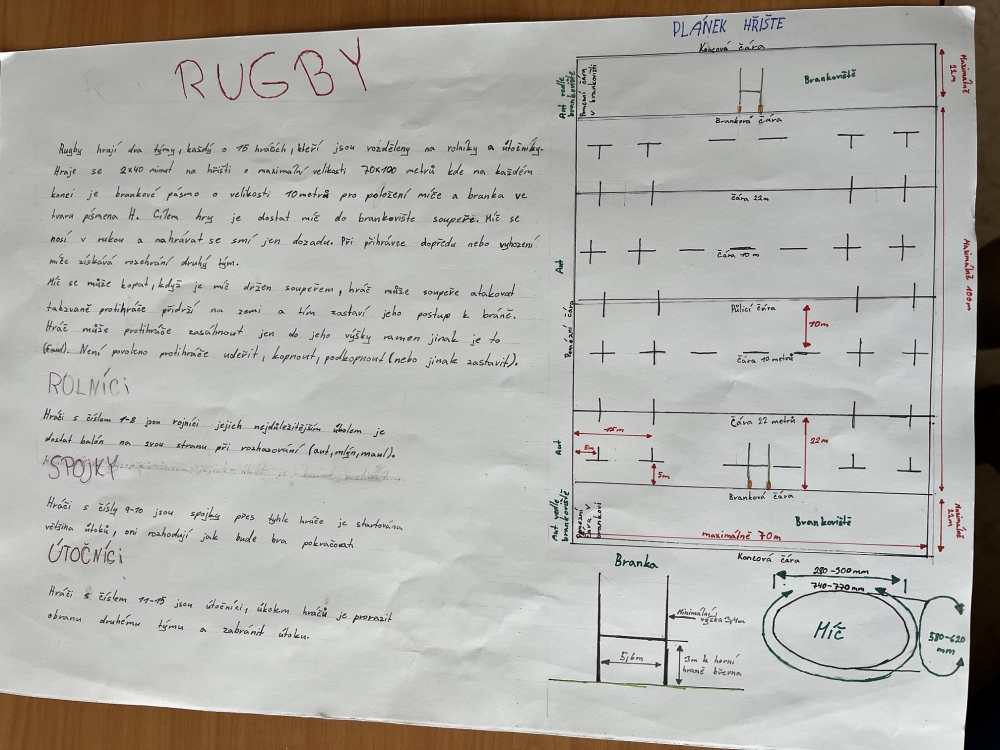 RUGBY
Rugby hrají dva týmy, každý o 15 hráčích, kteří jsou rozděleny na rolníky a útočníky.
Hraje se 2x40 minut na hřišti o maximální velikosti 70x100 metrů kde na každém
konci je brankové pásmo o velikosti 10 metrů pro položení míče a branka ve
tvaru písmena H. Cílem hry je dostat míč do brankoviště soupeře. Míč se
nosí v rukou a nahrávat se smí jen dozadu. Při přihrávce dopředu nebo vyhození
míče získává rozehrání druhý tým.
Míč se může kopat, když je míč držen soupeřem, hráč může soupeře atakovat
takzvaně protihráče přidrží na zemi a tím zastaví jeho postup k bráně.
Hráč může protihráče zasáhnout jen do jeho výšky ramen jinak je to
(faul). Není povoleno protihráče udeřit, kopnout, podkopnout (nebo jinak zastavit).
ROLNÍCI
Hráči s číslem 1-8 jsou rojníci jejich nejdůležitějším úkolem je
dostat balón na svou stranu při rozhazování (aut, mlýn, maul).
SPOJKY
Hráči s čísly 9-10 jsou spojky přes tyhle hráče je startována
většina útoků, oni rozhodují jak bude hra pokračovat
ÚTOČNÍCI
Hráči s číslem 11-15 jsou útočníci, úkolem hráčů je prorazit
obranu druhému týmu a zabránit útoku.
PLÁNEK HŘIŠTE
Koncová čára
Aut vedle
brankoviště
Pomezní čára
v brankovišti
Brankoviště
Maximálně
22m
Branková čára
čára 22m
Aut
čára 10 m
Maximálně 100m
Pomezní čára
Půlící čára
10m
čára 10 metrů
Čára 22 metrů
15m
Aut
5m
5m
22m
Branková čára
Aut vedle
brankoviště
Pomezní
čára v
brankovi
Brankoviště
Maximálně
22m
maximálně 70m
Koncová čára
Branka
Minimální
výška 3,4m
5,6m
3m k horní
hraně břevna
280-300mm
740-770mm
Míč
580-620
mm